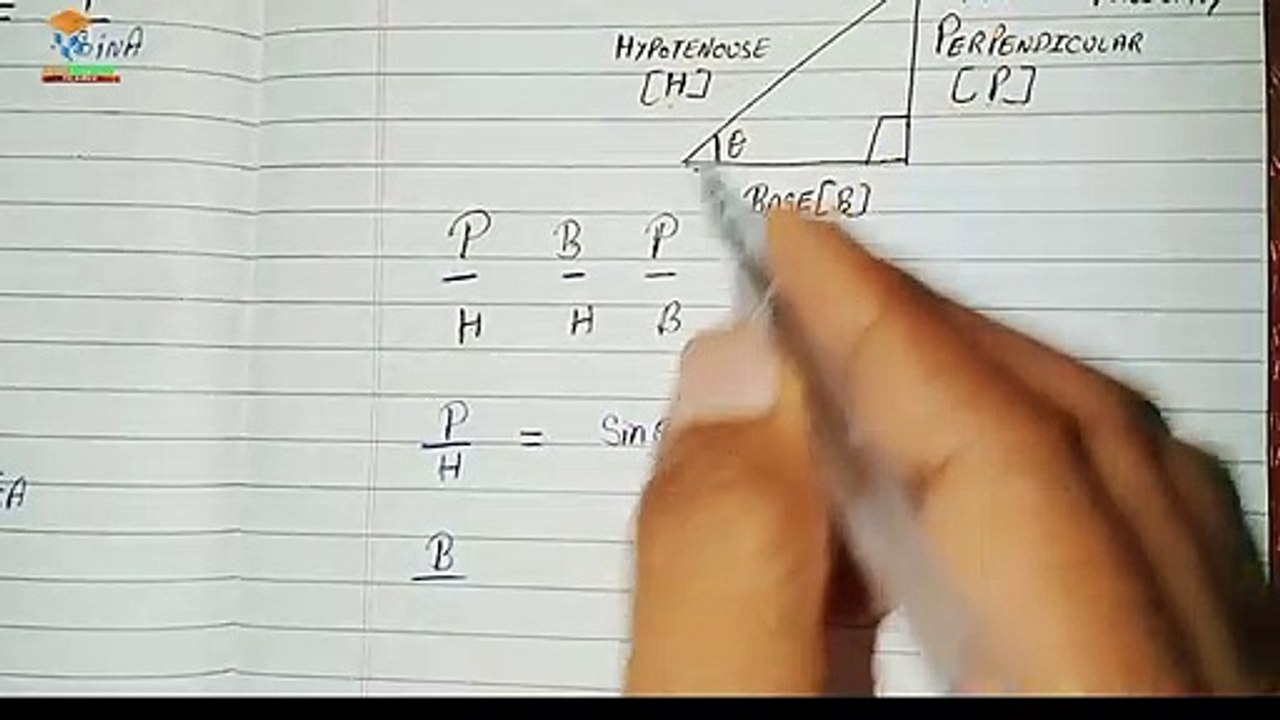 SinA
HYPOTENOUSE
[H]
PERPENDICULAR
[P]
θ
BASE[B]
P B P
H H B
P/H = Sin
B